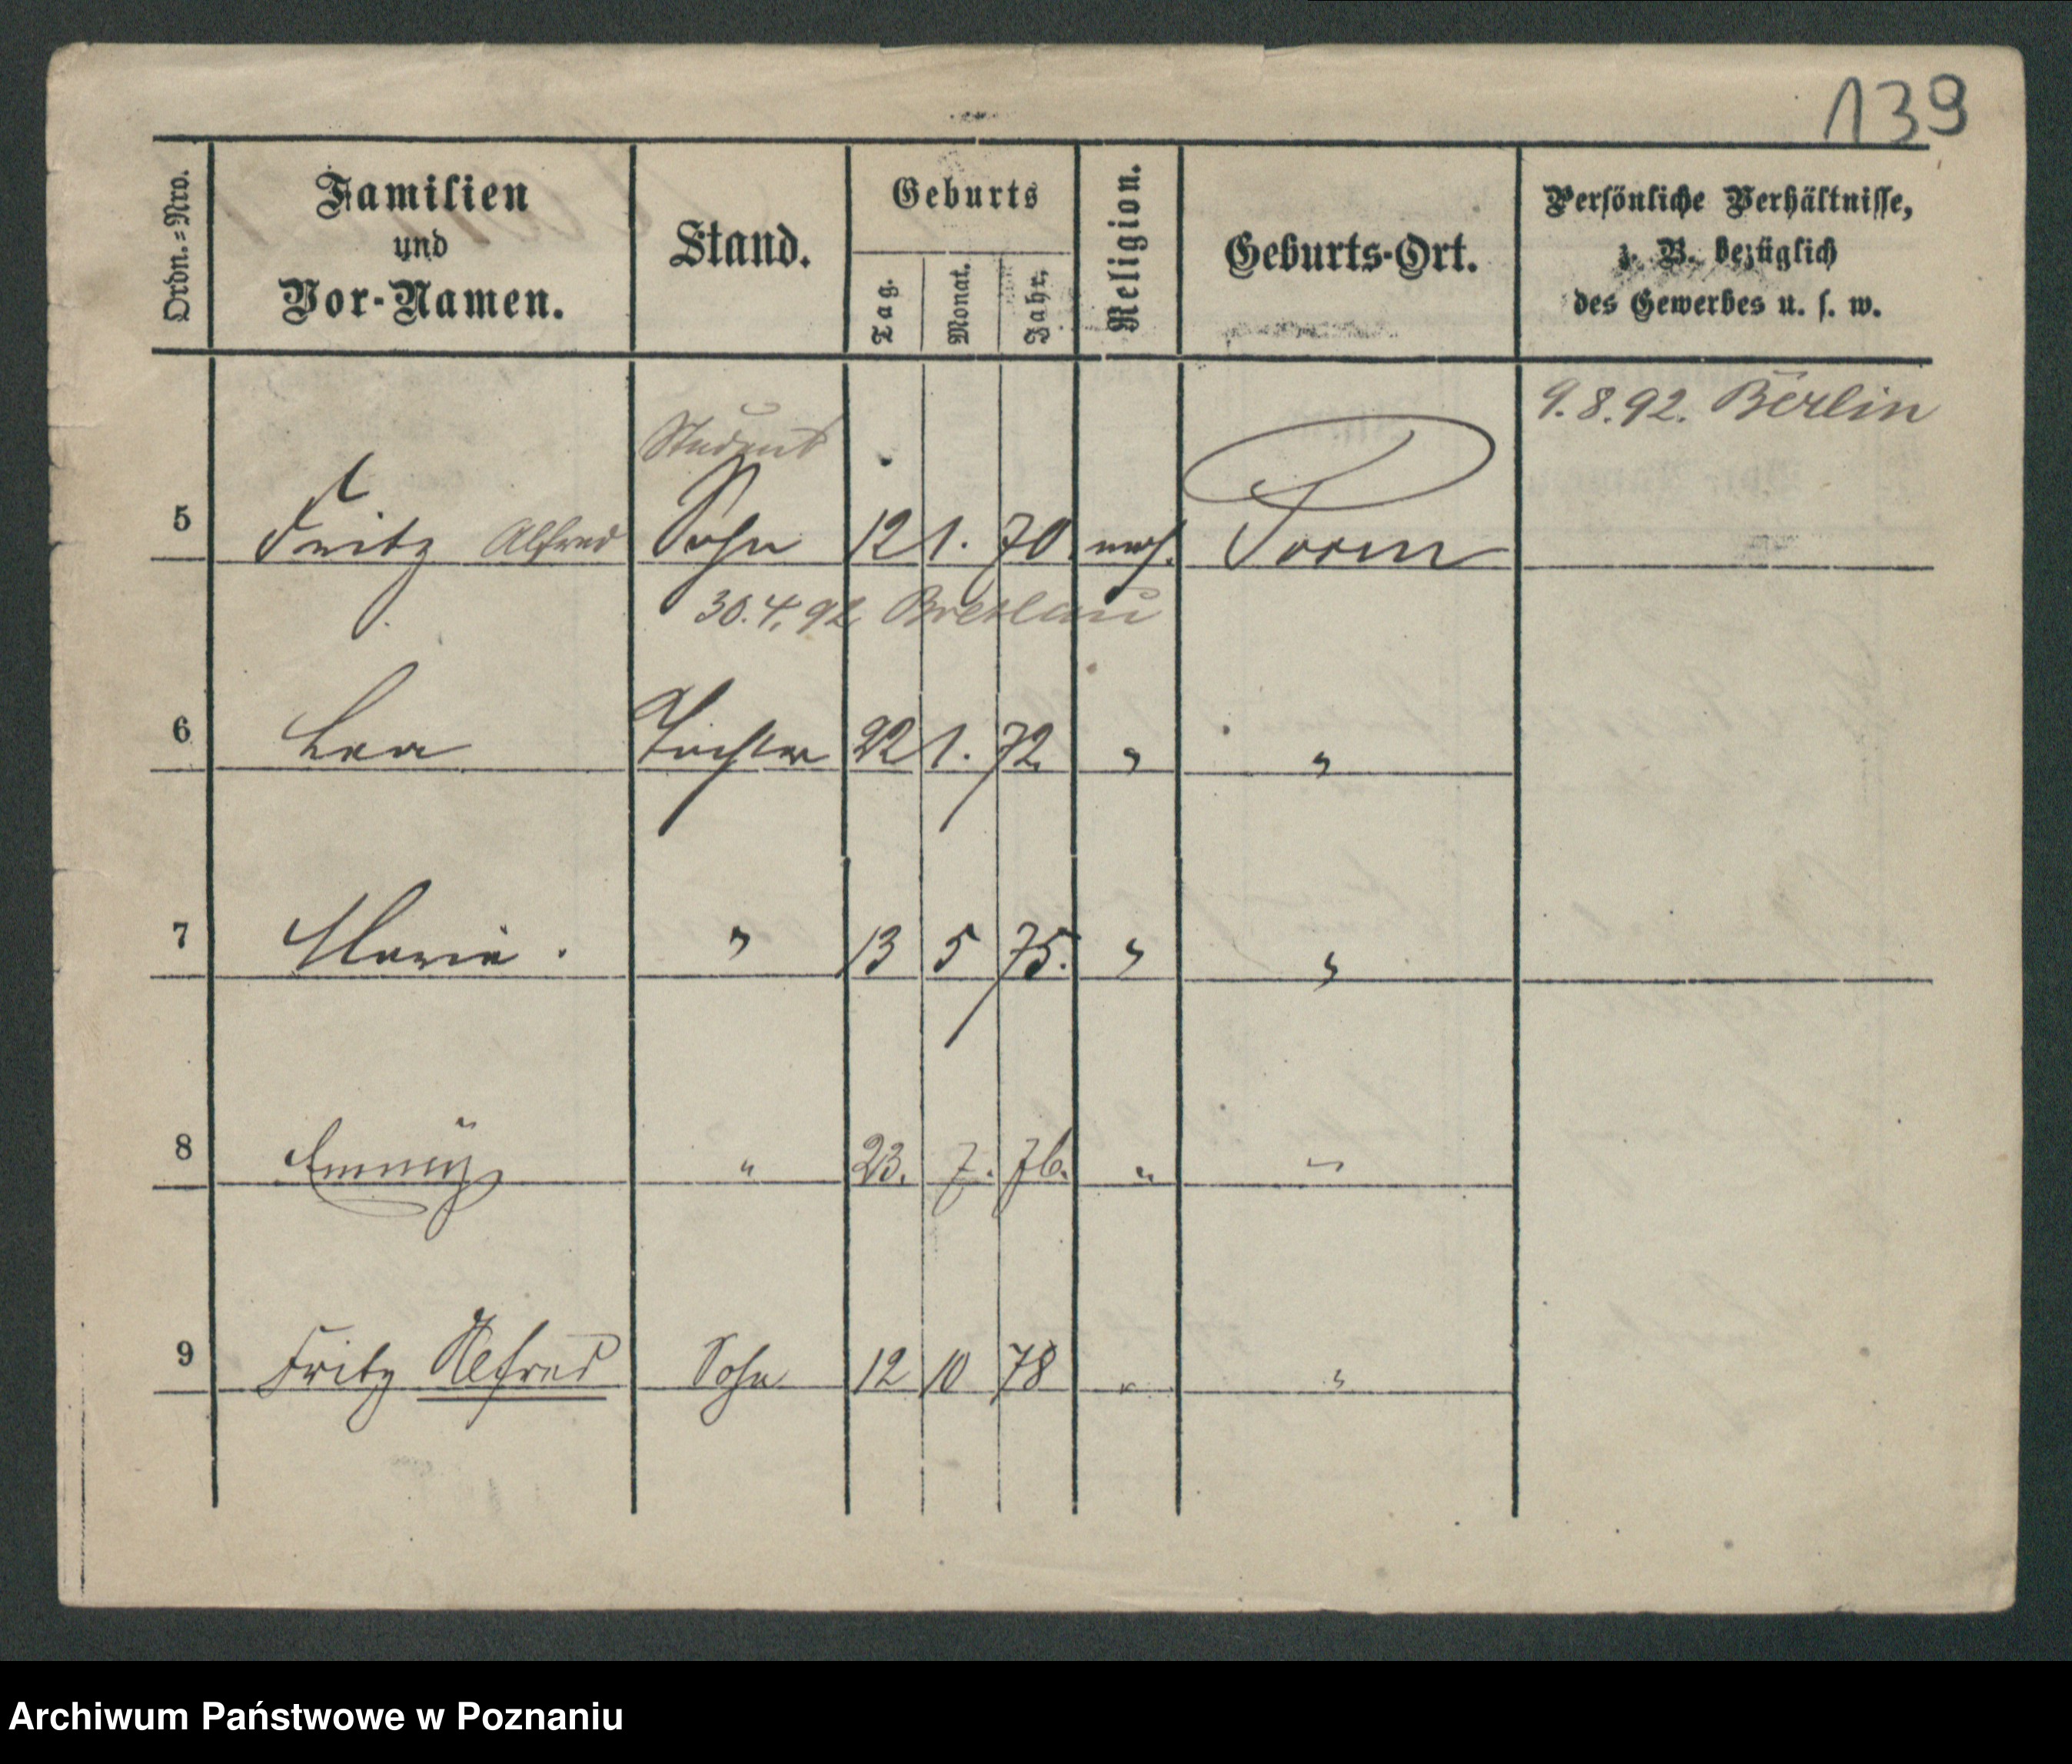 139
Ordn.=Nro.
Familien
und
Vor-Namen.
Stand.
Geburts
Tag.
Monat.
Jahr.
Religion.
Geburts-Ort.
Persönliche Verhältnisse,
z. B. bezüglich
des Gewerbes u. s. w.
9.8.92. Berlin
Student
5 Fritz Alfred Sohn 12 1. 70. mos. Posen
30.4.92 Breslau
6 Tochter 22 1. 72. " "
7 Marie. " 13 5 75. " "
8 Emmy " 23. 7. 76. " "
9 Fritz Alfred Sohn 12 10 78 " "
Archiwum Państwowe w Poznaniu